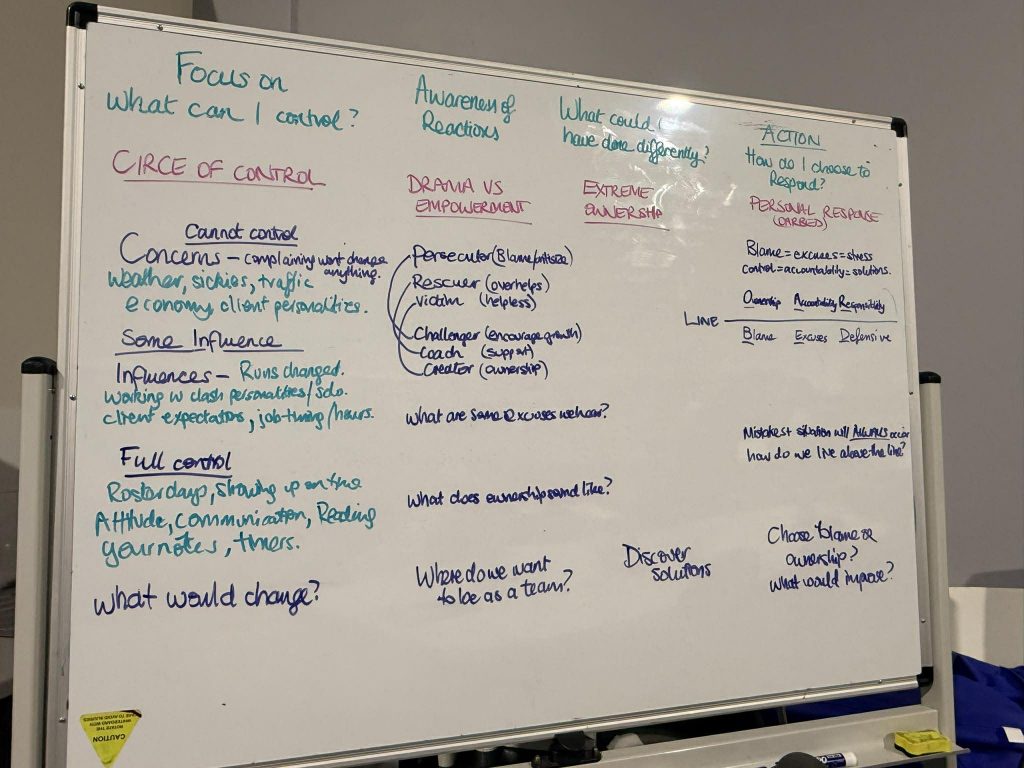 Focus on
What can I control?
CIRCE OF CONTROL
Cannot control
Concerns – complaining wont change
anything.
Weather, sickies, traffic
economy client personalities.
Some Influence
Influences – Runs changed.
Working w clash personalities/solo.
client expectations, job timing/hours.
Full control
Roster days, showing up on time
Attitude, communication, Reading
your notes, timers.
What would change?
Awareness of
Reactions
DRAMA VS
EMPOWERMENT
Persecutor (Blame/critisize)
Rescuer (overhelps)
victim (helpless)
Challenger (encourage growth)
Coach (support)
Creator (ownership)
What are some excuses we hear?
What does ownership sound like?
Where do we want
to be as a team?
What could I
have done differently?
EXTREME
OWNERSHIP
Discover
solutions
ACTION
How do I choose to
Respond?
PERSONAL RESPONSE
(OARBED)
Blame = excuses = stress
control = accountability = solutions.
Ownership Accountability Responsibility
LINE
Blame Excuses Defensive
Mistakes + situation will ALWAYS occur
how do we live above the line?
Choose blame or
ownership?
What would improve?
CAUTION
ROTATE THE
WHITEBOARD WITH
CARE TO AVOID INJURIES